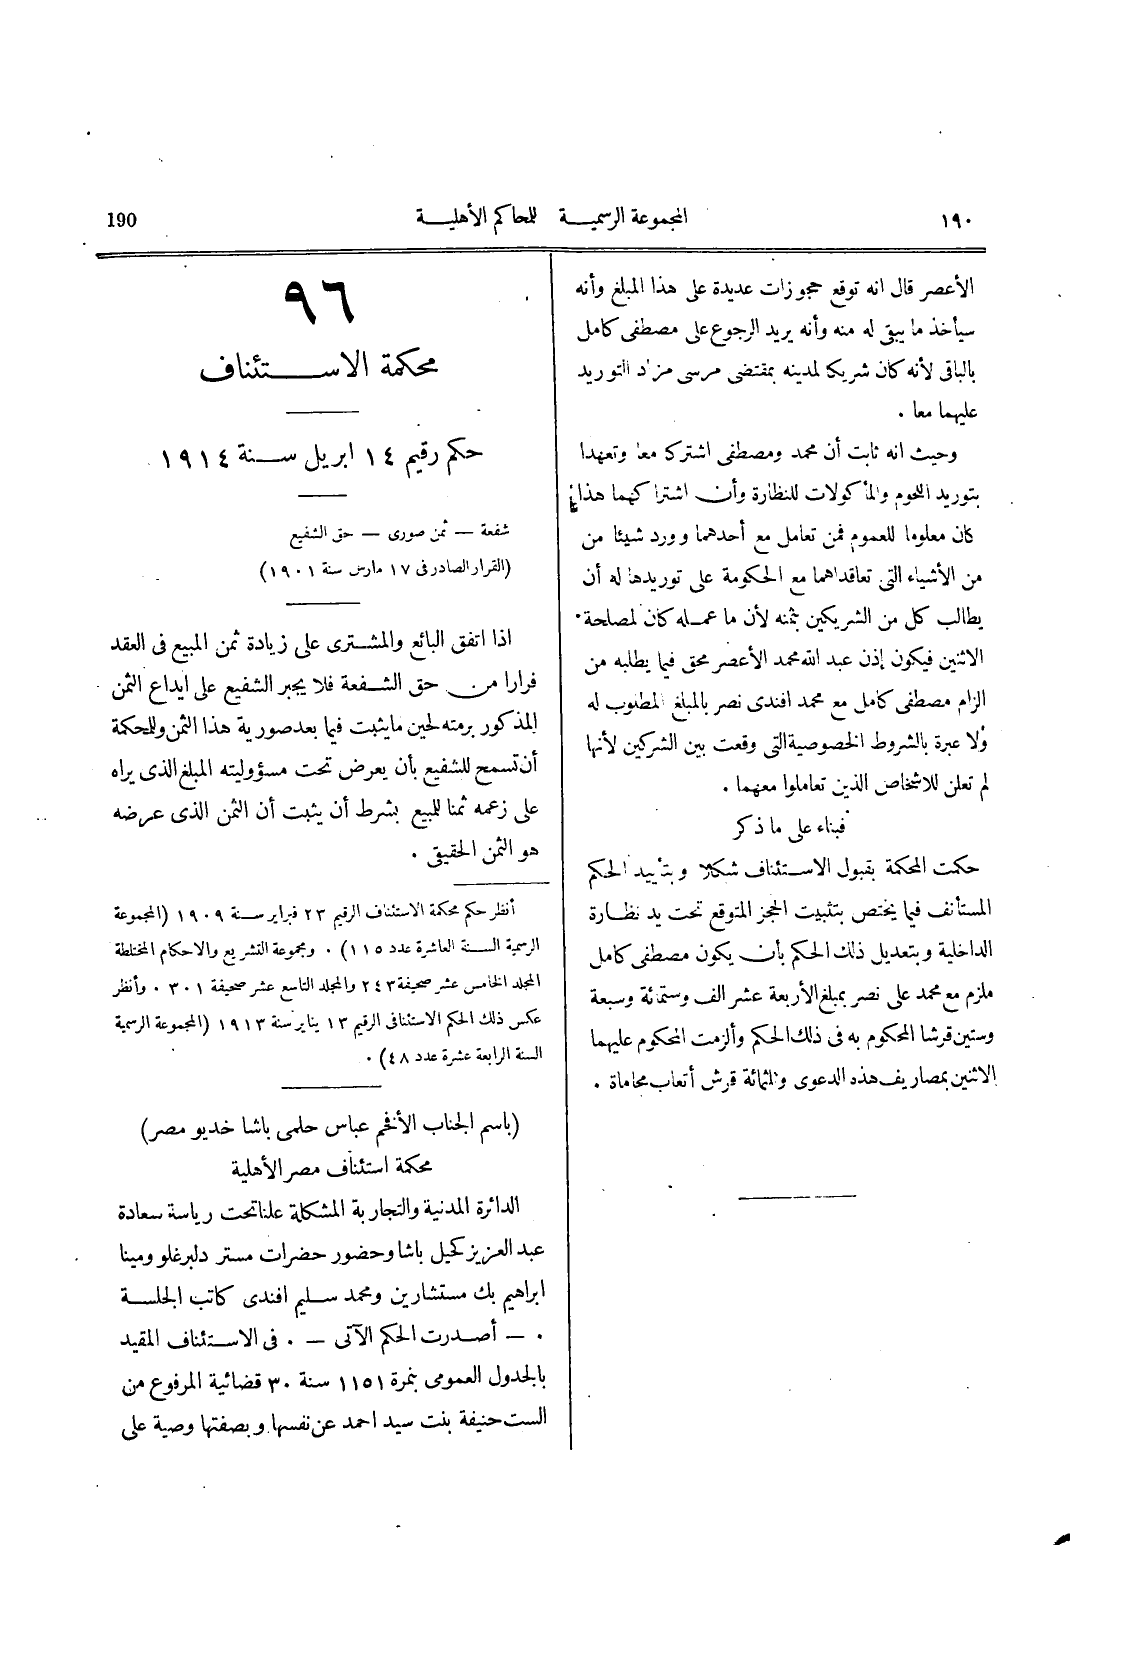 ١٩٠ المجموعة الرسمية للمحاكم الأهلية 190
الأعصر قال انه توقع حجوزات عديدة على هذا المبلغ وأنه
سيأخذ ما يبقى له منه وأنه يريد الرجوع على مصطفى كامل
بالباقى لأنه كان شريكا لمدينه بمقتضى مرسى مزاد التوريد
عليهما معا .
وحيث انه ثابت أن محمد ومصطفى اشتركا معا وتعهدا
بتوريد اللحوم والمأكولات للنظارة وأن اشتراكهما هذا
كان معلوما للعموم فمن تعامل مع أحدهما وورد شيئا من
من الأشياء التى تعاقداهما مع الحكومة على توريدها له أن
يطالب كل من الشريكين بثمنه لأن ما عمله كان لمصلحة
الاثنين فيكون إذن عبد الله محمد الأعصر محق فيما يطلبه من
الزام مصطفى كامل مع محمد افندى نصر بالمبلغ المطلوب له
ولا عبرة بالشروط الخصوصية التى وقعت بين الشركين لأنها
لم تعلن للاشخاص الذين تعاملوا معهما .
فبناء على ما ذكر
حكمت المحكمة بقبول الاستئناف شكلا وبتأييد الحكم
المستأنف فيما يختص بتثبيت الحجز المتوقع تحت يد نظارة
الداخلية وبتعديل ذلك الحكم بأن يكون مصطفى كامل
ملزم مع محمد على نصر بمبلغ الأربعة عشر الف وستمائة وسبعة
وستين قرشا المحكوم به فى ذلك الحكم وألزمت المحكوم عليهما
الاثنين بمصاريف هذه الدعوى وثلثمائة قرش أتعاب محاماة .
٩٦
محكمة الاستئناف
حكم رقيم ١٤ ابريل سنة ١٩١٤ .
شفعة — ثمن صورى — حق الشفيع
(القرار الصادر فى ١٧ مارس سنة ١٩٠١)
اذا اتفق البائع والمشترى على زيادة ثمن المبيع فى العقد
فرارا من حق الشفعة فلا يجبر الشفيع على ايداع الثمن
المذكور برمته لحين ما يثبت فيما بعد صورية هذا الثمن وللمحكمة
أن تسمح للشفيع بأن يعرض تحت مسؤوليته المبلغ الذى يراه
على زعمه ثمنا للمبيع بشرط أن يثبت أن الثمن الذى عرضه
هو الثمن الحقيقى .
أنظر حكم محكمة الاستئناف الرقيم ٢٣ فبراير سنة ١٩٠٩ (المجموعة
الرسمية السنة العاشرة عدد ١١٥) . ومجموعة التشريع والاحكام المختلطة
المجلد الخامس عشر صحيفة ٢٤٣ والمجلد التاسع عشر صحيفة ٣٠١ . وأنظر
عكس ذلك الحكم الاستئنافى الرقيم ١٣ يناير سنة ١٩١٣ (المجموعة الرسمية
السنة الرابعة عشرة عدد ٤٨) .
(باسم الجناب الأفخم عباس حلمى باشا خديو مصر)
محكمة استئناف مصر الأهلية
الدائرة المدنية والتجارية المشكلة علنا تحت رياسة سعادة
عبد العزيز كحيل باشا وحضور حضرات مستر دلبرغلو ومينا
ابراهيم بك مستشارين ومحمد سليم افندى كاتب الجلسة
. — أصدرت الحكم الآتى — . فى الاستئناف المقيد
بالجدول العمومى بنمرة ١١٥١ سنة ٣٠ قضائية المرفوع من
الست حنيفة بنت سيد احمد عن نفسها وبصفتها وصية على